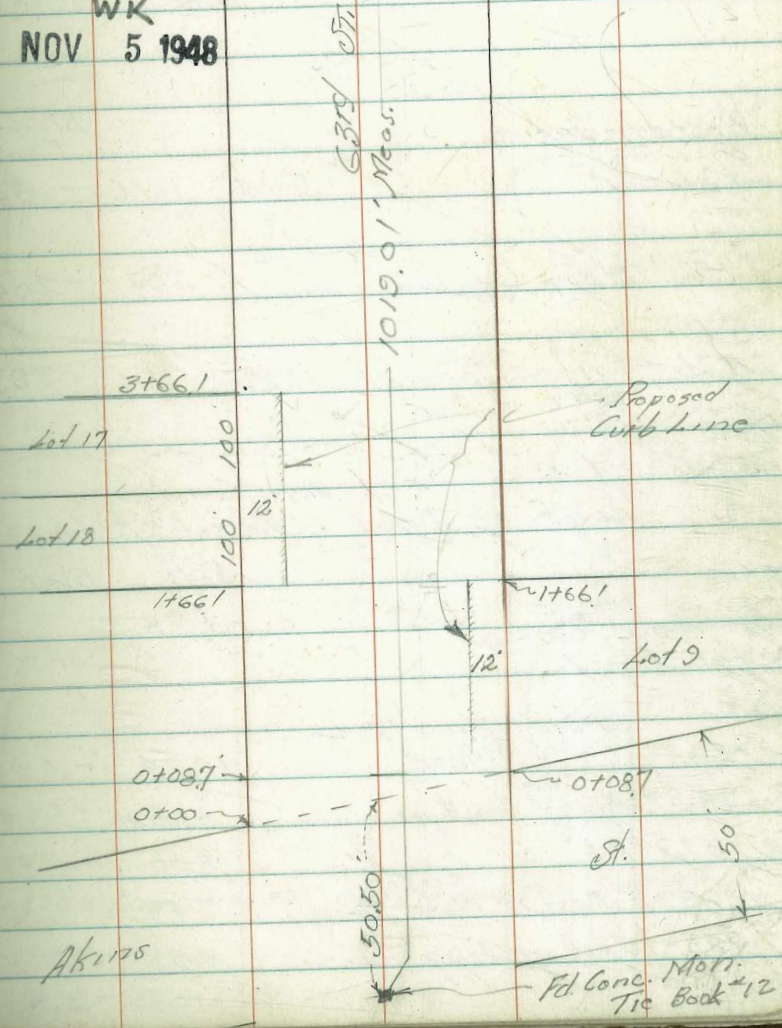 WK
NOV 5 1948
63rd St.
1019.01' Meas.
3+66.1
Proposed
Curb Line
Lot 17
100'
12'
Lot 18
100'
1+66.1
1+66.1
12'
Lot 9
0+08.7
0+08.7
0+00
50.50'
St.
50'
Akins
Fd. Conc. Mon.
Tie Book #12